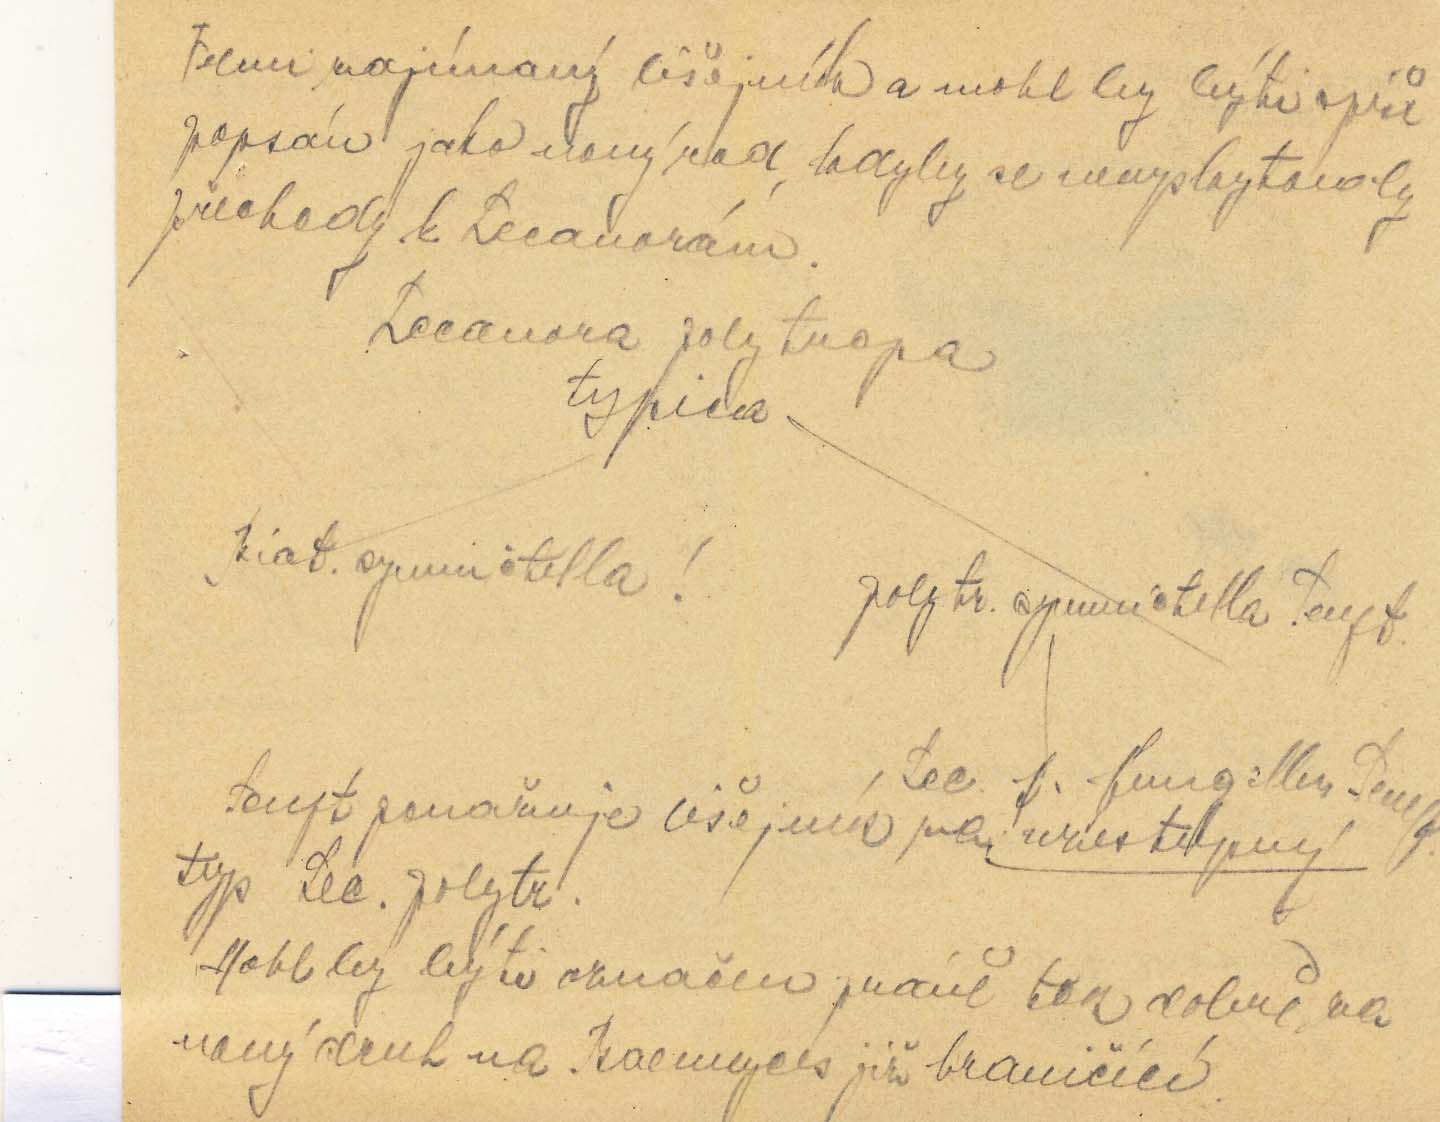 Velmi zajímavý lišejník a mohl by býti spíš
popsán jako nový rod, kdyby se nevyskytovaly
přechody k Lecanorám.
Lecanora polytropa
typica
Biat. symmictella!
polytr. symmictella
Lec. f.
považuje lišejník za vzestupný
typ Lec. polytr.
Mohl by býti označen právě tak dobře za
nový druh na Baeomyces již hraničící.